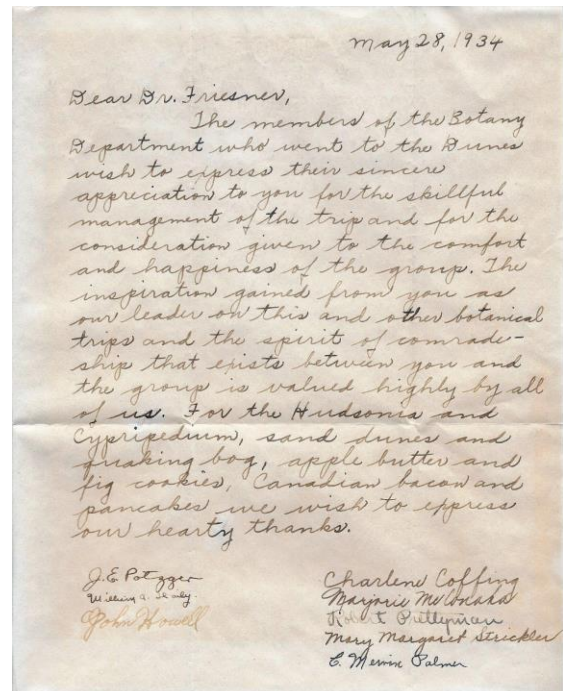 May 28, 1934
Dear Dr. Friesner,
The members of the Botany
Department who went to the Dunes
wish to express their sincere
appreciation to you for the skillful
management of the trip and for the
consideration given to the comfort
and happiness of the group. The
inspiration gained from you as
our leader on this and other botanical
trips and the spirit of comrade-
ship that exists between you and
the group is valued highly by all
of us. For the Hudsonia and
Cypripedium, sand dunes and
quaking bog, apple butter and
fig cookies, Canadian bacon and
pancakes we wish to express
our hearty thanks.
J. E. Potzger
William A.
John Howell
Charlene Coffing
Marjorie
Robert Prettyman
Mary Margaret Strickler
C. Mervin Palmer